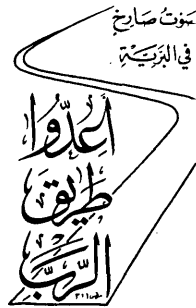 صَوْتُ صَارِخٍ
فِي البَرِّيَّةِ
أَعِدُّوا
طَرِيقَ
الرَّبِّ